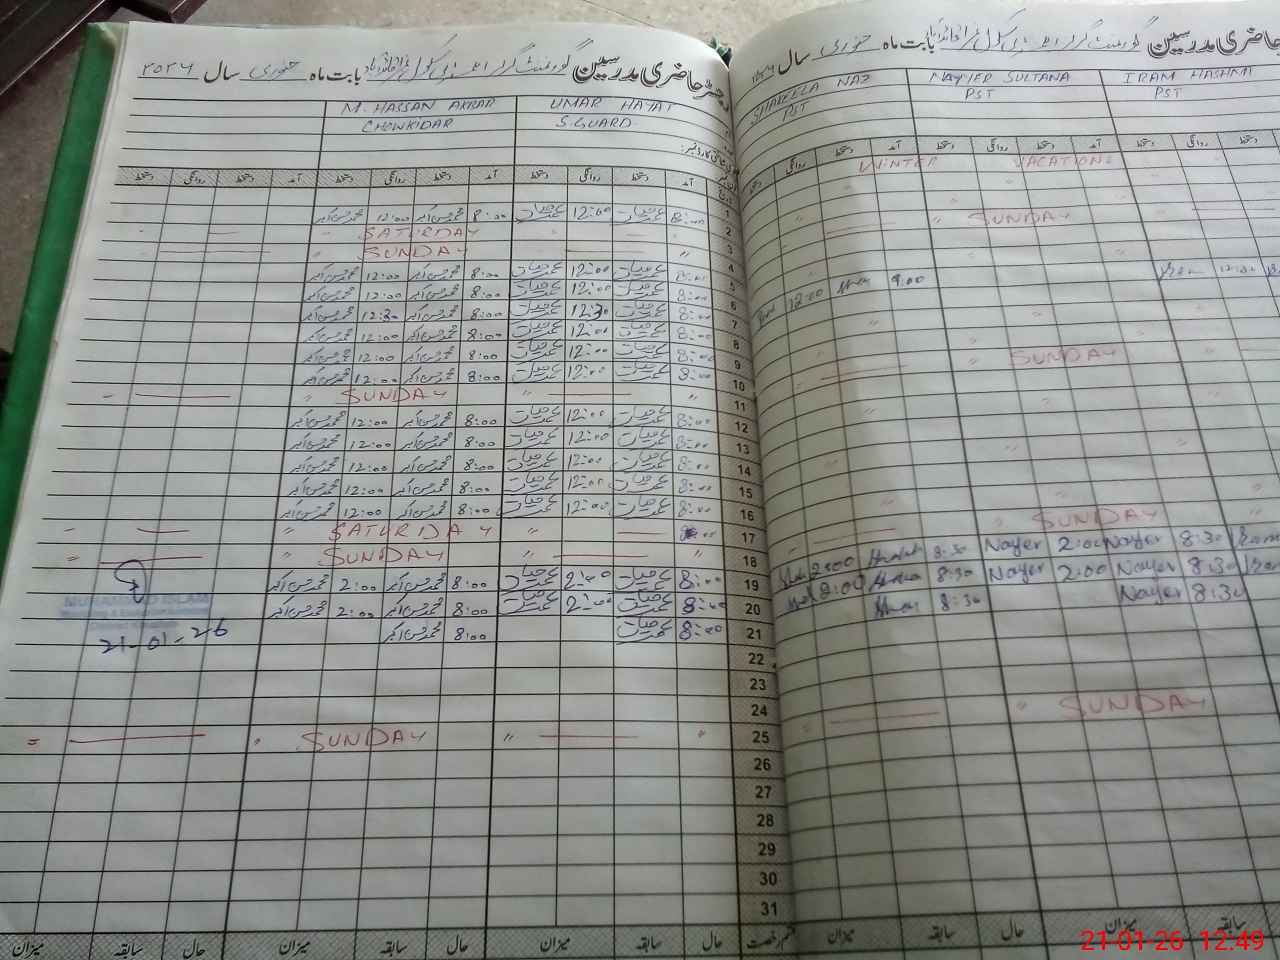 رجسٹر حاضری مدرسین گورنمنٹ گرلز سکول بابت ماہ جنوری سال ۲۰۲۶
UMAR HAYAT M. HASSAN AKBAR
S.GUARD. CHOWKIDAR
آمد دستخط روانگی دستخط آمد دستخط روانگی دستخط آمد دستخط روانگی دستخط
1 8:00 عمر حیات 12:00 عمر حیات 8:00 محمد حسن اکبر 12:00 محمد حسن اکبر
2 SATURDAY
3 " SUNDAY
4 8:00 عمر حیات 12:00 عمر حیات 8:00 محمد حسن اکبر 12:00 محمد حسن اکبر
5 8:00 عمر حیات 12:00 عمر حیات 8:00 محمد حسن اکبر 12:00 محمد حسن اکبر
6 8:00 عمر حیات 12:30 عمر حیات 8:00 محمد حسن اکبر 12:30 محمد حسن اکبر
7 8:00 عمر حیات 12:00 عمر حیات 8:00 محمد حسن اکبر 12:00 محمد حسن اکبر
8 8:00 عمر حیات 12:00 عمر حیات 8:00 محمد حسن اکبر 12:00 محمد حسن اکبر
9 8:00 عمر حیات 12:00 عمر حیات 8:00 محمد حسن اکبر 12:00 محمد حسن اکبر
10 " " " SUNDAY
11 8:00 عمر حیات 12:00 عمر حیات 8:00 محمد حسن اکبر 12:00 محمد حسن اکبر
12 8:00 عمر حیات 12:00 عمر حیات 8:00 محمد حسن اکبر 12:00 محمد حسن اکبر
13 8:00 عمر حیات 12:00 عمر حیات 8:00 محمد حسن اکبر 12:00 محمد حسن اکبر
14 8:00 عمر حیات 12:00 عمر حیات 8:00 محمد حسن اکبر 12:00 محمد حسن اکبر
15 8:00 عمر حیات 12:00 عمر حیات 8:00 محمد حسن اکبر 12:00 محمد حسن اکبر
16
17 " " SATURDAY
18 " " " SUNDAY
19 8:00 عمر حیات 2:00 عمر حیات 8:00 محمد حسن اکبر 2:00 محمد حسن اکبر
20 8:00 عمر حیات 2:00 عمر حیات 8:00 محمد حسن اکبر 2:00 محمد حسن اکبر
21 8:00 عمر حیات 8:00 محمد حسن اکبر
MUHAMMAD ISLAM
21-01-26
22
23
24
25 " " " SUNDAY
26
27
28
29
30
31
حال سابقہ میزان حال سابقہ میزان حال سابقہ میزان
حاضری مدرسین گورنمنٹ گرلز سکول بابت ماہ جنوری سال
IRAM HASHMI NAYIER SULTANA SHAKEELA NAZ
PST PST PST
دستخط روانگی دستخط آمد دستخط روانگی دستخط آمد دستخط روانگی
WINTER VACATIONS
" SUNDAY
12:30 9:00 12:00
" SUNDAY
" SUNDAY
8:30 Nayer 2:00 Nayer 8:30 2:00
8:30 Nayer 2:00 Nayer 8:30 2:00
8:30 Nayer 8:30
" SUNDAY
سابقہ میزان حال سابقہ میزان
21-01-26 12:49